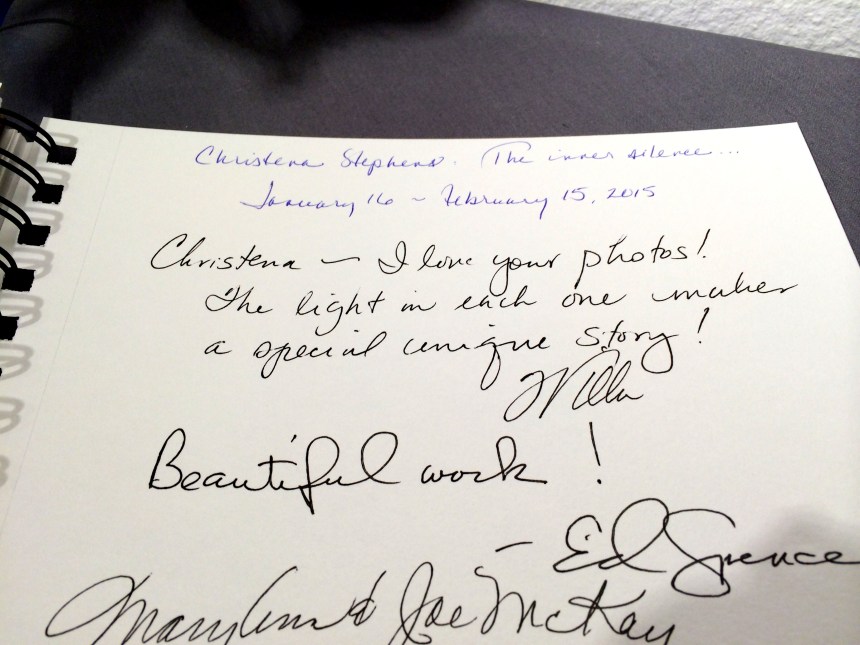 Christena Stephens. The inner silence...
January 16 ~ February 15, 2015
Christena ~ I love your photos!
The light in each one makes
a special unique story!
Willa
Beautiful work!
- Ed Spence
Mary Ann & Joe McKay